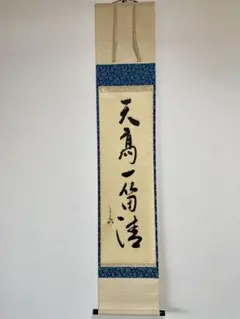 天高一笛清